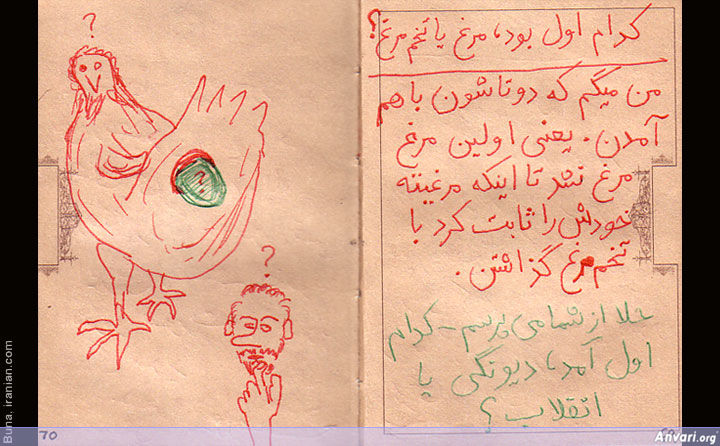 کدام اول بود، مرغ یا تخم مرغ؟
من میگم که دوتاشون با هم
آمدن. یعنی اولین مرغ
مرغ نشد تا اینکه مرغیته
خودش را ثابت کرد با
تخم مرغ گذاشتن.
حلا از شما می پرسم - کدام
اول آمد، دیونگی یا
انقلاب؟
?
?
?
70
Buna. iranian.com
Anvari.org